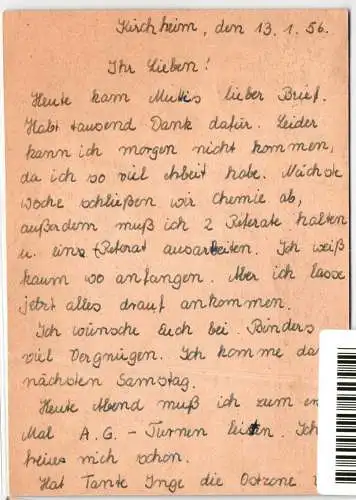 Kirchheim, den 13.1.56.
Ihr Lieben!
Heute kam Muttis lieber Brief.
Habt tausend Dank dafür. Leider
kann ich morgen nicht kommen,
da ich so viel Arbeit habe. Nächste
Woche schließen wir Chemie ab,
außerdem muß ich 2 Referate halten
u. eins (Referat ausarbeiten. Ich weiß
kaum wo anfangen. Aber ich lasse
jetzt alles drauf ankommen.
Ich wünsche Euch bei Binders
viel Vergnügen. Ich komme da
nächsten Samstag.
Heute Abend muß ich zum er
Mal A.G. - Turnen leiten. Ich
freue mich schon.
Hat Tante Inge die Ostzone